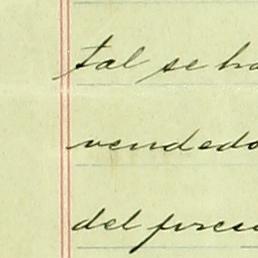 tal se ha
vendedo
del prese